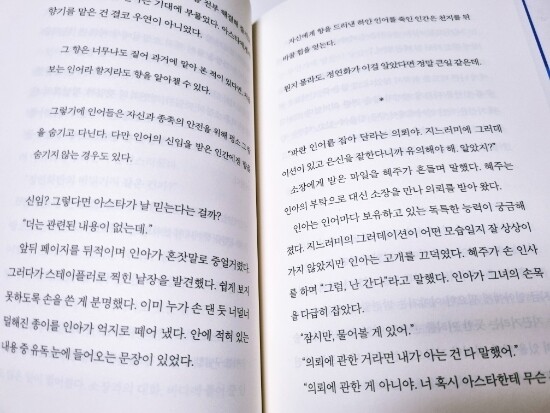 전부 해결해
는 기대에 부풀었다. 아스타
향기를 맡은 건 결코 우연이 아니었다.
그 향은 너무나도 짙어 과거에 맡아 본 적이 있다면
보는 인어라 할지라도 향을 알아챌 수 있다.
그렇기에 인어들은 자신과 종족의 안전을 위해 평소
을 숨기고 다닌다. 다만 인어의 신임을 받은 인간에겐
숨기지 않는 경우도 있다.
신임? 그렇다면 아스타가 날 믿는다는 걸까?
“더는 관련된 내용이 없는데.”
앞뒤 페이지를 뒤적이며 인아가 혼잣말로 중얼거렸다.
그러다가 스테이플러로 찍힌 낱장을 발견했다. 쉽게 보지
못하도록 손을 쓴 게 분명했다. 이미 누가 손 댄 듯 너덜너
덜해진 종이를 인아가 억지로 떼어 냈다. 안에 적혀 있는
내용 중 유독 눈에 들어오는 문장이 있었다.
자신에게 향을 드러낸 하얀 인어를 죽인 인간은 천지를 뒤
바꿀 힘을 얻는다.
뭔지 몰라도, 정연화가 이걸 알았다면 정말 큰일 같은데.
*
“파란 인어를 잡아 달라는 의뢰야. 지느러미에 그러데
이션이 있고 은신을 잘한다니까 유의해야 해. 알았지?”
소장에게 받은 파일을 혜주가 흔들며 말했다. 혜주는
인아의 부탁으로 대신 소장을 만나 의뢰를 받아 왔다.
인아는 인어마다 보유하고 있는 독특한 능력이 궁금해
졌다. 지느러미의 그러데이션이 어떤 모습일지 잘 상상이
가지 않았지만 인아는 고개를 끄덕였다. 혜주가 손 인사
를 하며 “그럼, 난 간다”라고 말했다. 인아가 그녀의 손목
을 다급히 잡았다.
“잠시만, 물어볼 게 있어.”
“의뢰에 관한 거라면 내가 아는 건 다 말했어.”
“의뢰에 관한 게 아니야. 너 혹시 아스타한테 무슨